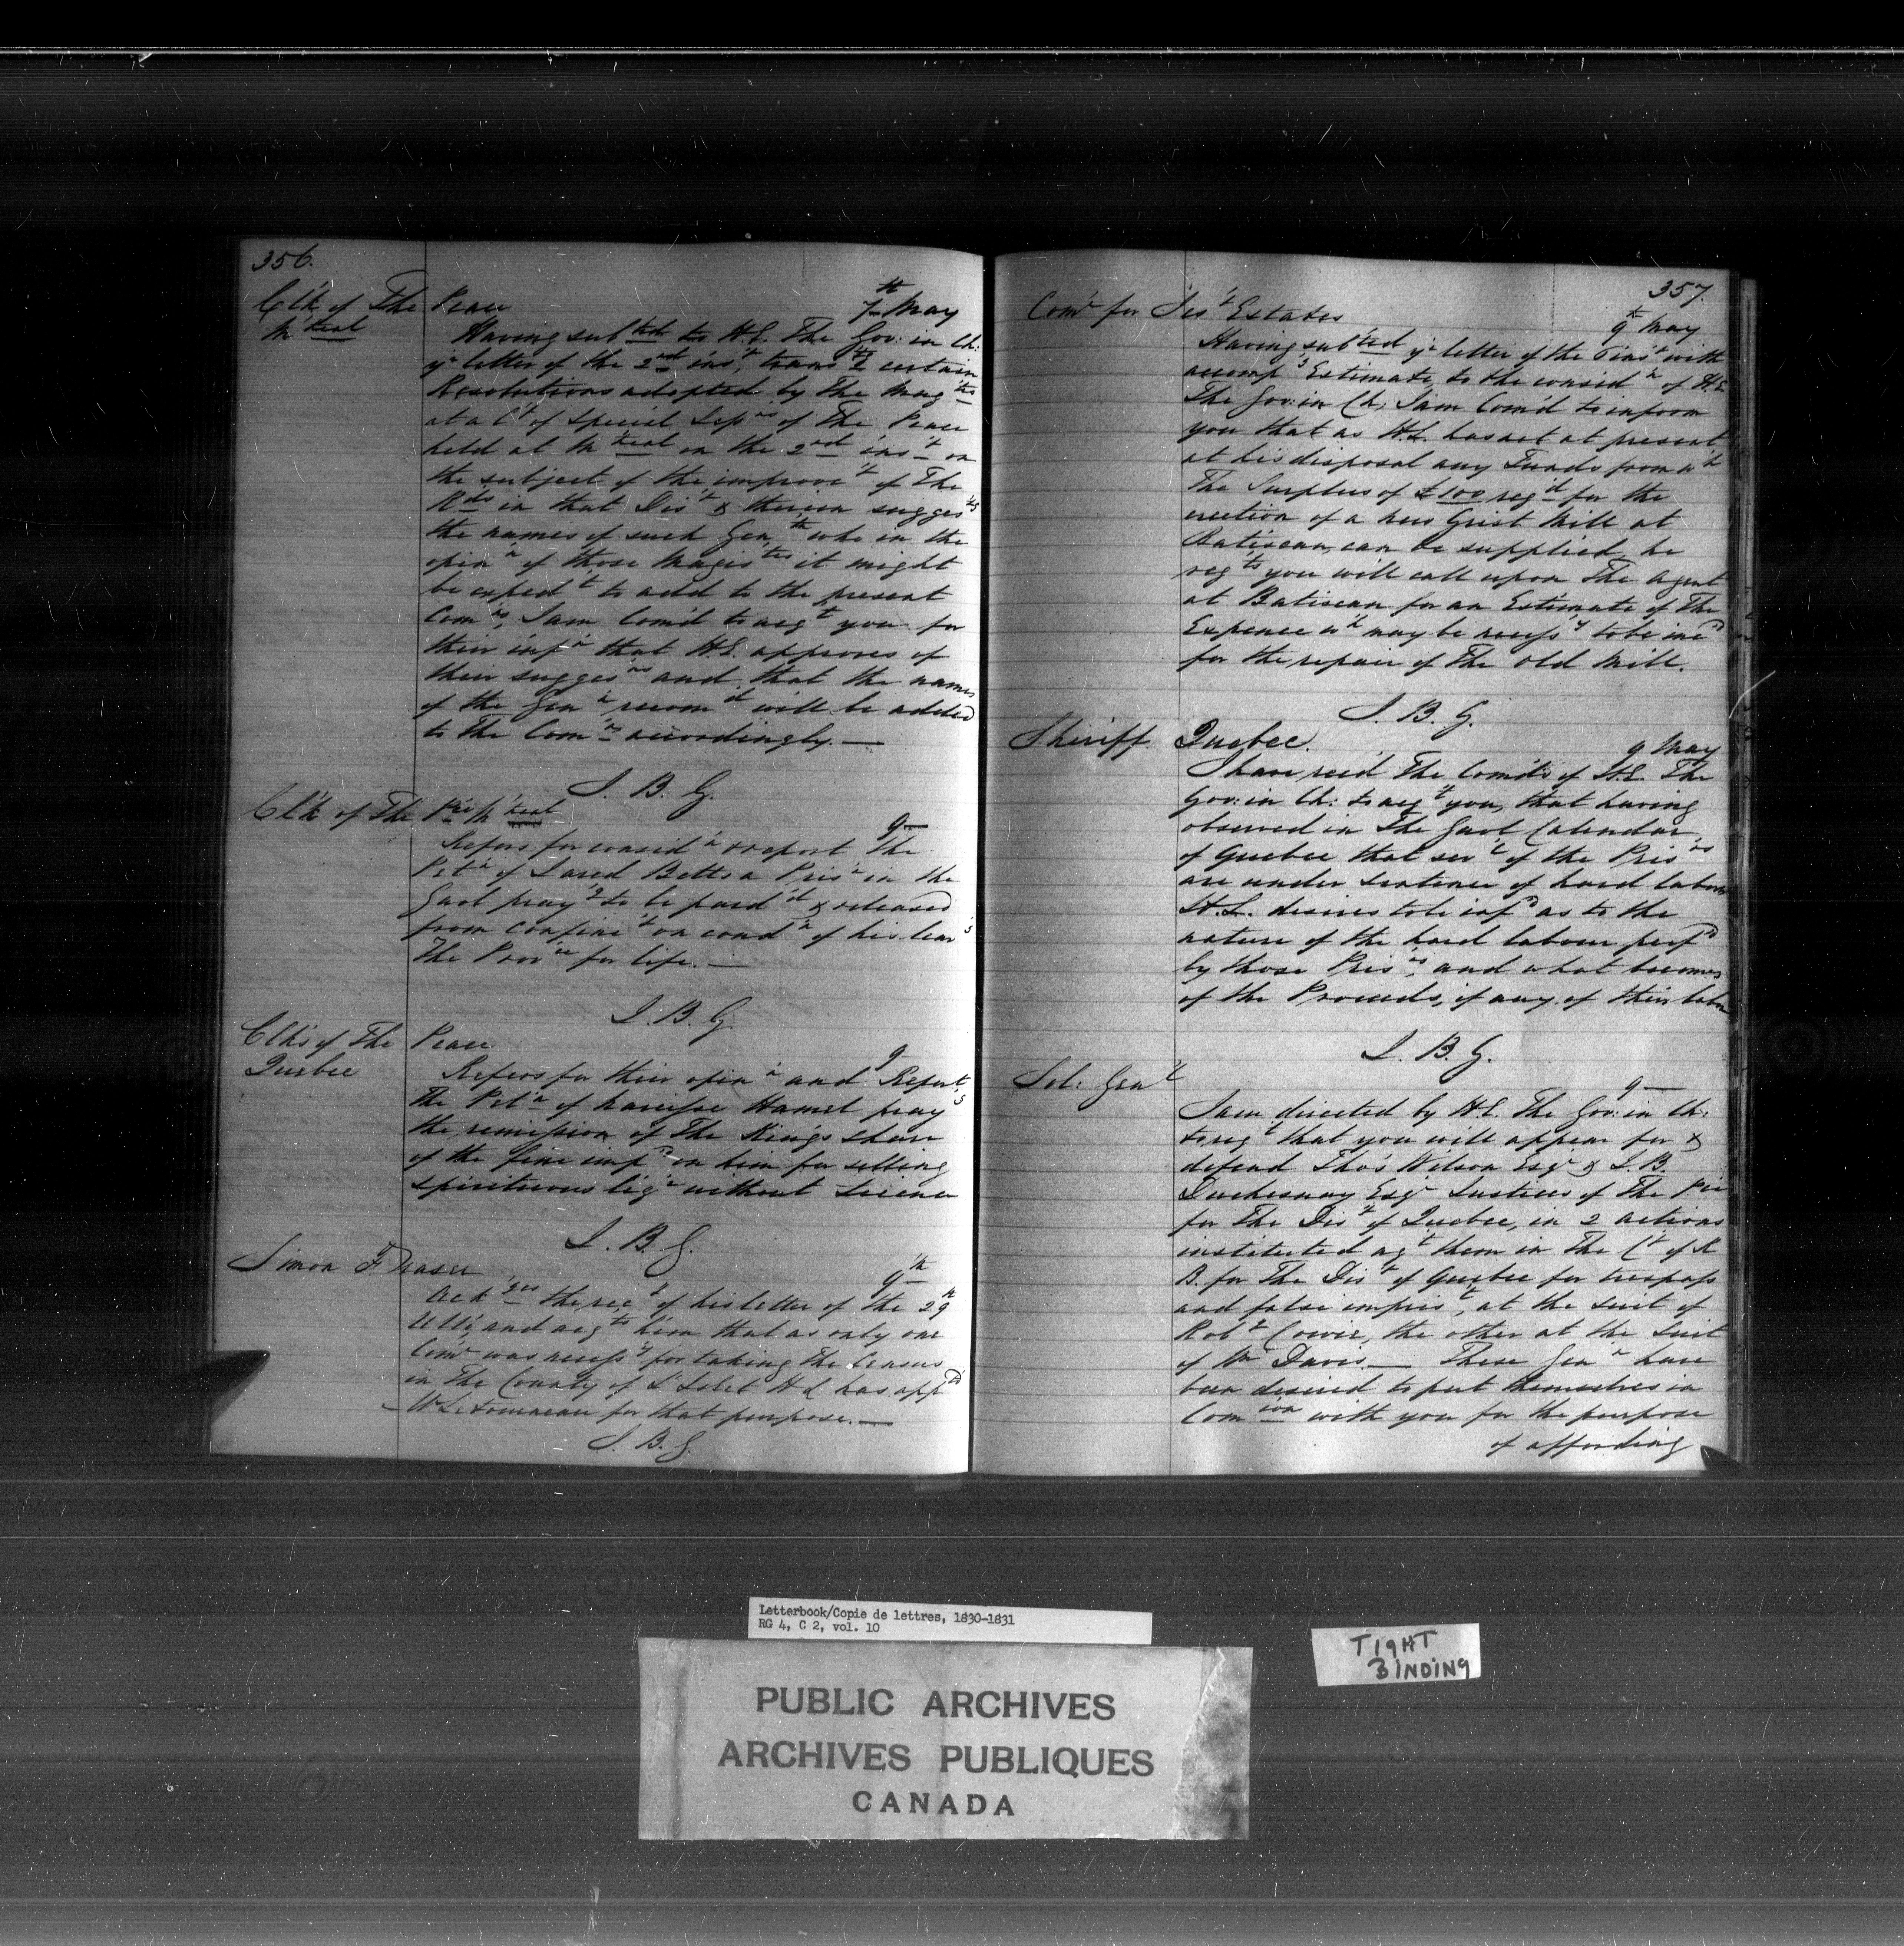 356.
Clk of The Peace 7th May
M'treal
Having subted to H.E. The Gov: in Ch:
yr letter of the 2nd inst, transtg certain
Resolutions adopted by the Magtes
at a Ct of Special Sesns of The Peace
held at Mtreal on the 2nd inst on
the subject of the improvet of The
Rds in that Dist & therein suggestg
the names of such Gen who in the
opinn of those Magistes it might
be expedt to add to the present
Comns, I am Com'd to acqt you for
their infn that H.E. approves of
their suggesns and that the names
of the Genn recomd will be added
to the Comn accordingly. —
J. B. G.
Clk of The Pce Mtreal 9—
Refers for considn & report The
Petn of Jared Betts a Prisr in the
Gaol prayg to be pard'd & released
from confinet on condn of his leavg
The Provce for life. —
J. B. G.
Clks of The Peace 9
Quebec
Refers for their opinn and Report
The Petn of Narcisse Hamel prayg
the remission of The King's share
of the fine impd on him for selling
spirituous liqr without License
J. B. G.
Simon Fraser 9th
Ackges the rect of his letter of the 29th
Ulto and acqts him that as only one
Comr was necessy for taking the Census
in The County of L'Islet H.E. has appd
Mr Letourneau for that purpose. —
J. B. G.
357.
Comr for Jest Estates 9th May
Having subted yr letter of the 6 inst with
accompg Estimate, to the considn of H.E.
The Gov: in Ch; I am Com'd to inform
you that as H.E. has not at present
at his disposal any Funds from wh
The Surplus of £100 reqd for the
erection of a new Grist Mill at
Batiscan, can be supplied, he
reqts you will call upon The Agent
at Batiscan for an Estimate of The
Expence wh may be necessy to be incd
for the repair of The old Mill.
J. B. G.
Sheriff Quebec. 9 May
I have recd The Comds of H.E. The
Gov: in Ch: to acqt you, that having
observed in The Gaol Calendar
of Quebec that sevl of the Prisrs
are under sentence of hard labour
H.E. desires to be infd as to the
nature of the hard labour perfd
by those Prisrs, and what becomes
of the Proceeds, if any, of their labr
J. B. G.
Sol: Genl 9—
I am directed by H.E. The Gov: in Ch:
to reqt that you will appear for &
defend Thos Wilson Esqr & J. B.
Duchesnay Esqr Justices of The Pce
for The Dist of Quebec, in 2 actions
instituted agt them in The Ct of K
B. for The Dist of Quebec for trespass
and false imprist, at the suit of
Robt Cowie, the other at the Suit
of Wm Davis. — These Genn have
been desired to put themselves in
Comion with you for the purpose
of affording
Letterbook/Copie de lettres, 1830-1831
RG 4, C 2, vol. 10
TIGHT
BINDING
PUBLIC ARCHIVES
ARCHIVES PUBLIQUES
CANADA